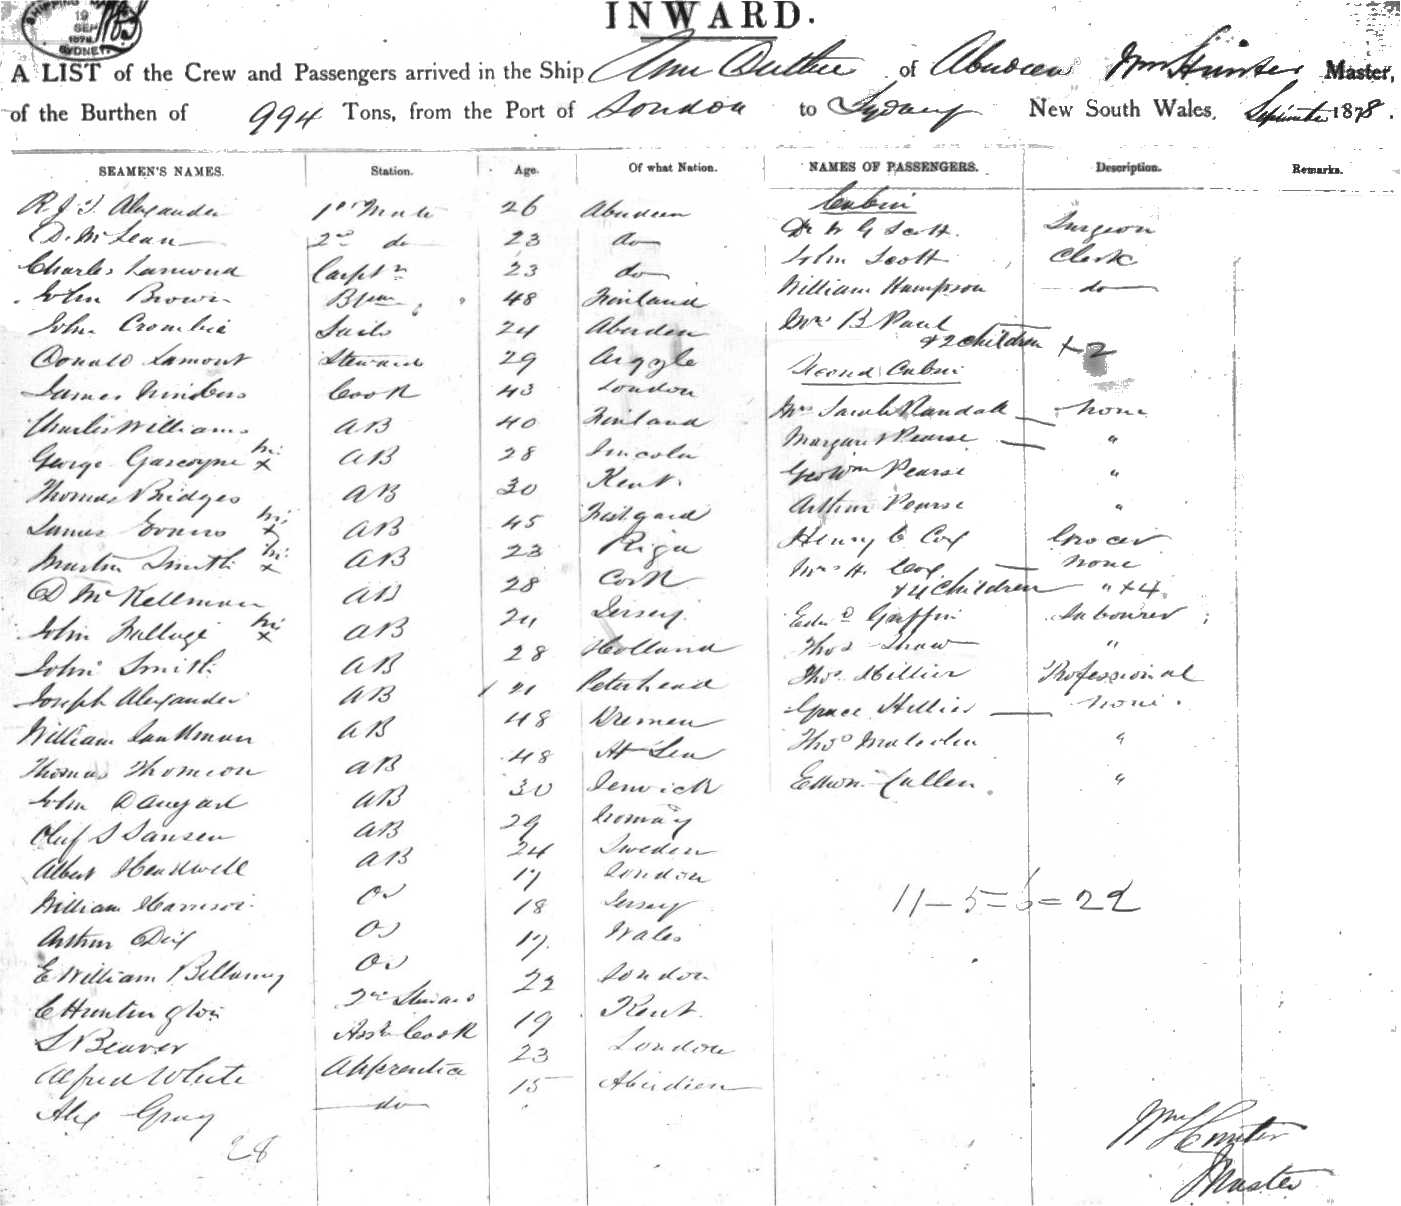 SHIPPING MASTER
19
SEP
1878
SYDNEY
INWARD.
A LIST of the Crew and Passengers arrived in the Ship Ann Duthie of Aberdeen Wm Hunter Master,
of the Burthen of 994 Tons, from the Port of London to Sydney New South Wales, September 1878.
SEAMEN'S NAMES. Station. Age. Of what Nation. NAMES OF PASSENGERS. Description. Remarks.
R. J. T. Alexander 1st Mate 26 Aberdeen Cabin
D. McLean 2nd do 23 do Dr W G Scott. Surgeon
Charles Lamond Carptr 23 do John Scott Clerk
John Brown 48 Finland William Hampson do
John Crombie Sails 24 Aberdeen Mrs B Paul
& 2 Children + 2
Donald Lamont Steward 29 Argyle Second Cabin
James Cook 43 London
Charles Williams AB 40 Finland Mrs Sarah Randall None
George Gascoyne x AB 28 Lincoln Margaret Pearse "
Thomas Bridges AB 30 Kent. Geo Wm Pearse "
James x AB 45 Arthur Pearse "
Martin Smith x AB 23 Riga Henry C Cox Grocer
D McKellman AB 28 Cork Mrs H. Cox None
& 4 Children " + 4
John x AB 21 Jersey Edwd Griffin Labourer
John Smith AB 28 Holland Thos Shaw "
Joseph Alexander AB 21 Peterhead Thos Hillier Professional
William AB 48 Bremen Grace Hillier None.
Thomas Thomson AB 48 At Sea Thos Malcolm "
John AB 30 Edwin Cullen "
Oluf S Jansen AB 29 Norway
Albert AB 24 Sweden
William Harrison OS 17 London
Arthur Dix OS 18 Jersey
E William Bellamy OS 17. Wales
C Huntington 2nd Steward 22 London
S Beaver Asst Cook 19 Kent
Alfred White Apprentice 23 London
Alex Gray do 15 Aberdeen
28
11 - 5 = 6 = 22
Wm Hunter
Master